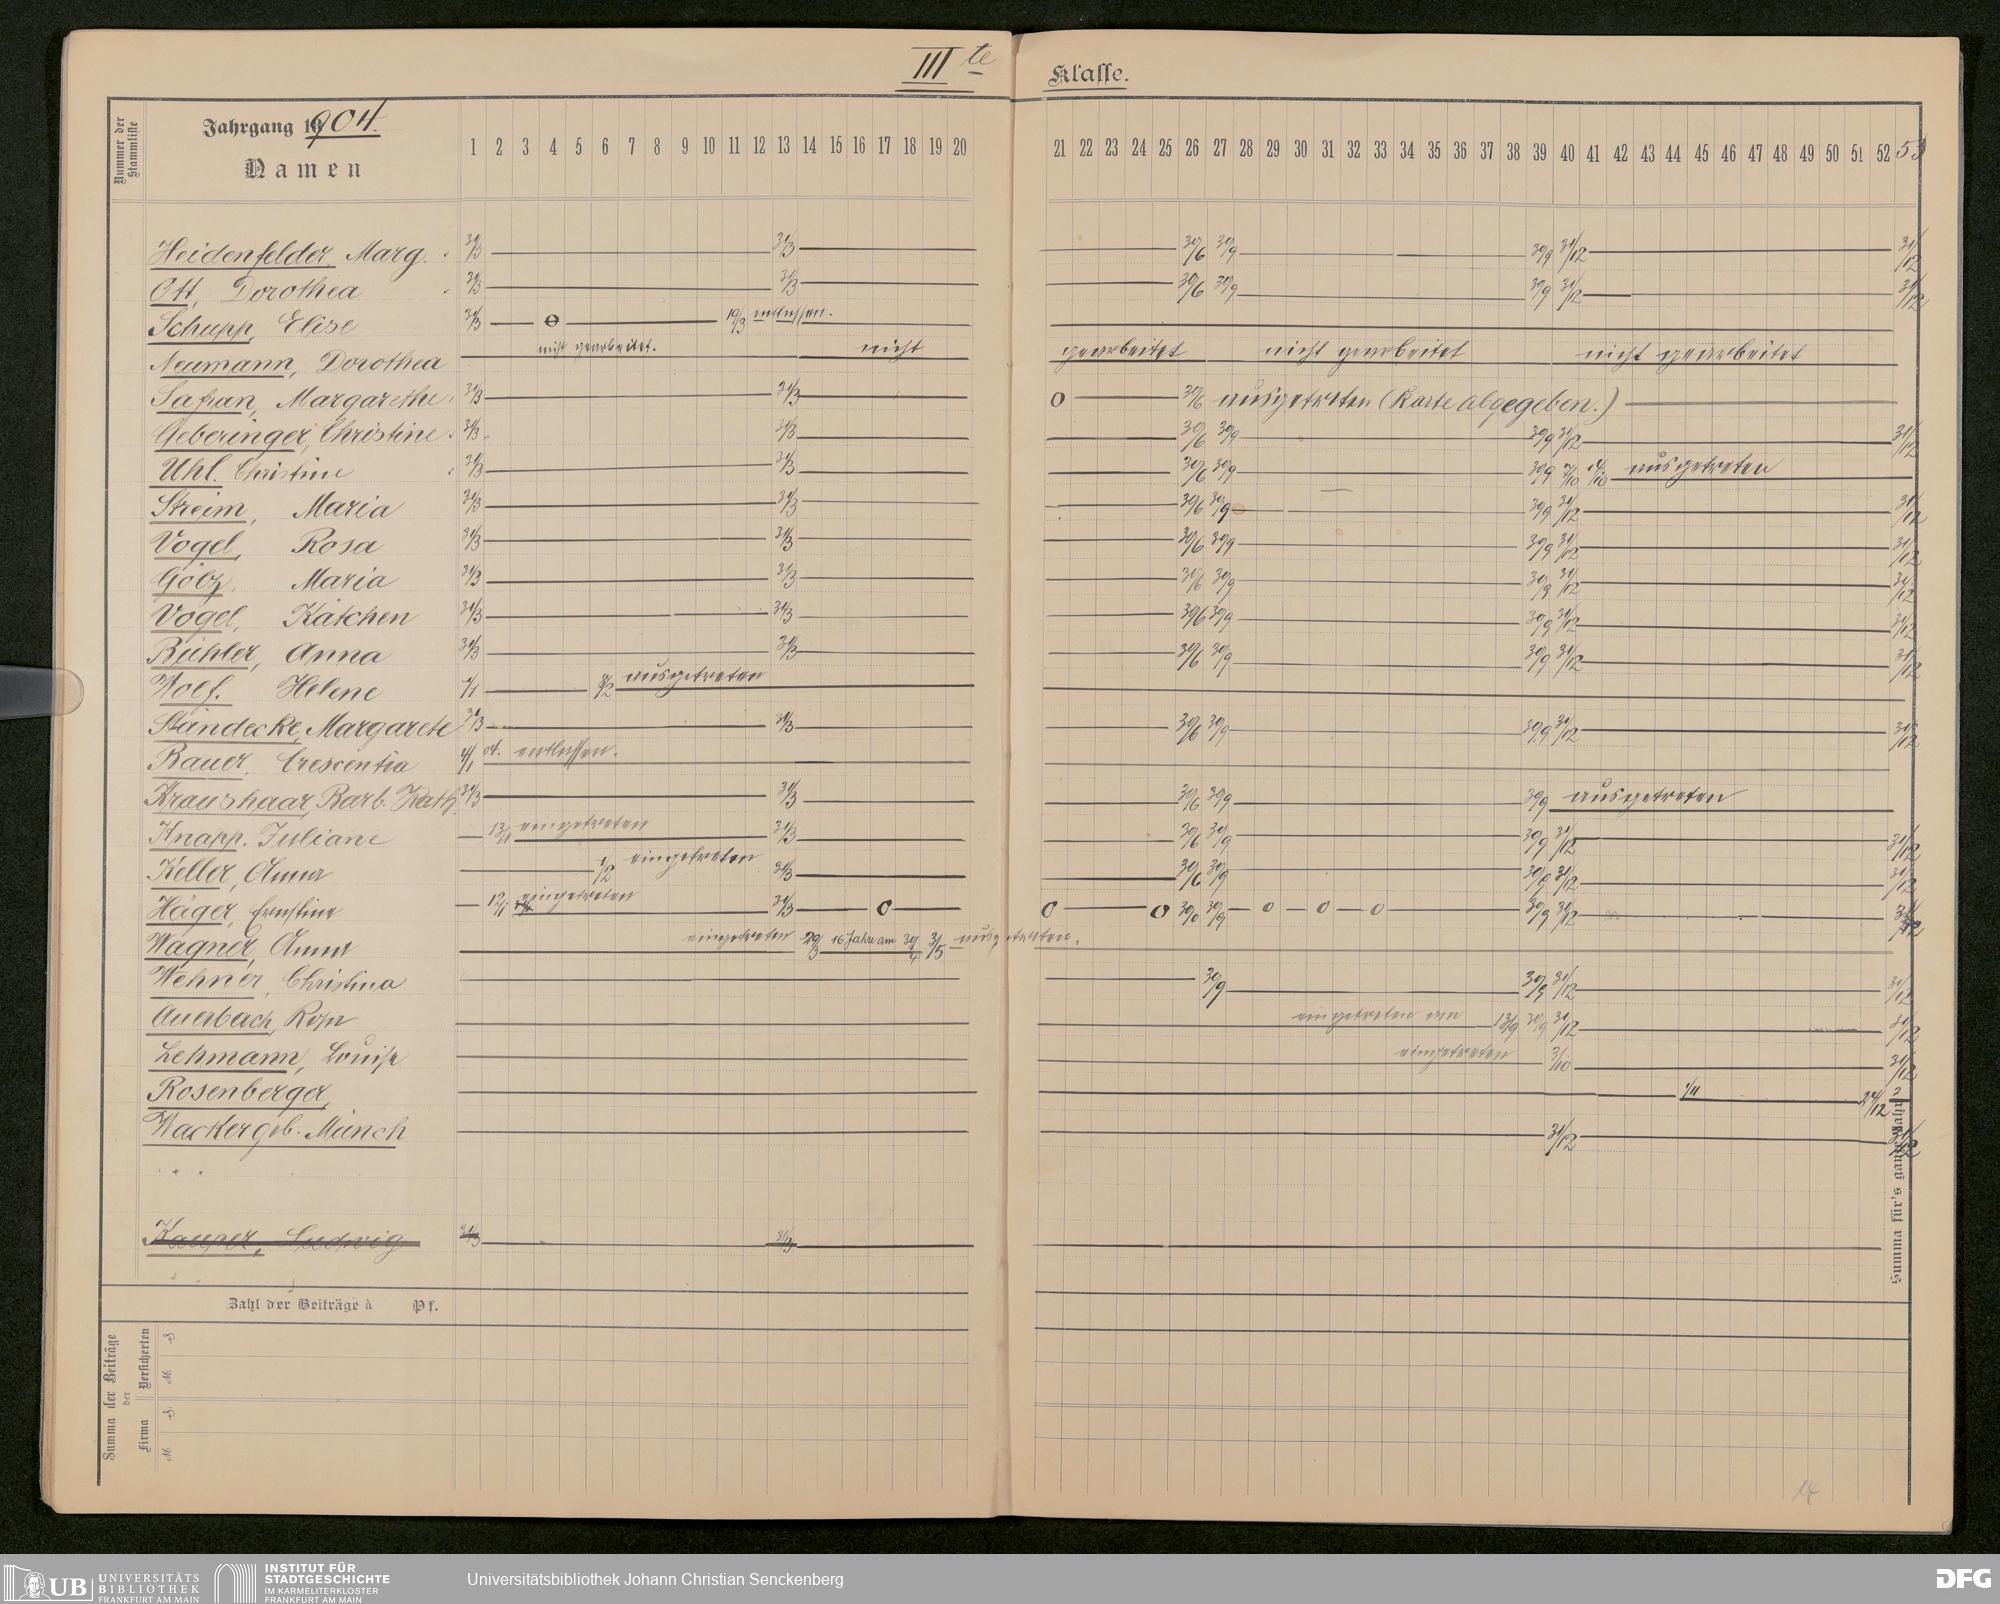 IIIte Klasse.
Nummer der Stammliste
Jahrgang 1904.
Namen
1 2 3 4 5 6 7 8 9 10 11 12 13 14 15 16 17 18 19 20 21 22 23 24 25 26 27 28 29 30 31 32 33 34 35 36 37 38 39 40 41 42 43 44 45 46 47 48 49 50 51 52 53
Heidenfelder Marg. 31/3 31/3 30/6 30/9 30/9 31/12 31/12
Ott, Dorothea 31/3 31/3 30/6 30/9 30/9 31/12 31/12
Schupp, Elise 31/3 0 19/3 entlassen.
Neumann, Dorothea nicht gearbeitet. nicht gearbeitet nicht gearbeitet nicht gearbeitet
Safran, Margarethe 31/3 31/3 0 30/6 ausgetreten (Karte abgegeben.)
Geberinger, Christine 31/3 31/3 30/6 30/9 30/9 31/12 31/12
Uhl. Christine 31/3 31/3 30/6 30/9 30/9 ausgetreten
Streim, Maria 31/3 31/3 30/6 30/9 30/9 31/12 31/12
Vogel, Rosa 31/3 31/3 30/6 30/9 30/9 31/12 31/12
Götz, Maria 31/3 31/3 30/6 30/9 30/9 31/12 31/12
Vogel, Kätchen 31/3 31/3 30/6 30/9 30/9 31/12 31/12
Bühler, Anna 31/3 31/3 30/6 30/9 30/9 31/12 31/12
Wolf. Helene ausgetreten
Ständecke, Margarete 31/3 31/3 30/6 30/9 30/9 31/12 31/12
Bauer, Crescentia 4/1 04. entlassen.
Kraushaar, Barb. Kath. 31/3 31/3 30/6 30/9 30/9 ausgetreten
Knapp. Juliane 13/1 eingetreten 31/3 30/6 30/9 30/9 31/12 31/12
Keller, Anna 1/2 eingetreten 31/3 30/6 30/9 30/9 31/12 31/12
Häger, Ernstine 12/1 eingetreten 31/3 0 0 0 30/6 30/9 0 0 0 30/9 31/12 31/12
Wagner, Anna eingetreten 29/3 16 Jahre am 30/4 3/5 ausgetreten.
Wehner, Christina 30/9 30/9 31/12 31/12
Auerbach, Rosa eingetreten am 13/9 30/9 31/12 31/12
Lehmann, Louise eingetreten 3/10 31/12
Rosenberger, 1/11 24/12 ?
Wacker geb. Münch 31/12 31/12
Kauper, Ludwig 31/3 31/3
Summa für's ganze Jahr
Zahl der Beiträge à Pf.
Summa der Beiträge
der
Firma Versicherten
M. S. M. S.
UB UNIVERSITÄTS
BIBLIOTHEK
FRANKFURT AM MAIN
INSTITUT FÜR
STADTGESCHICHTE
IM KARMELITERKLOSTER
FRANKFURT AM MAIN
Universitätsbibliothek Johann Christian Senckenberg
DFG